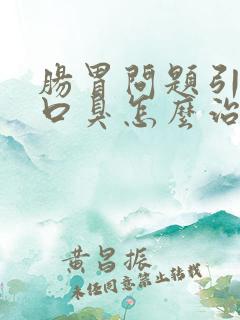 腸胃問題引
口臭怎麼治
黃昌振
未經同意禁止轉載